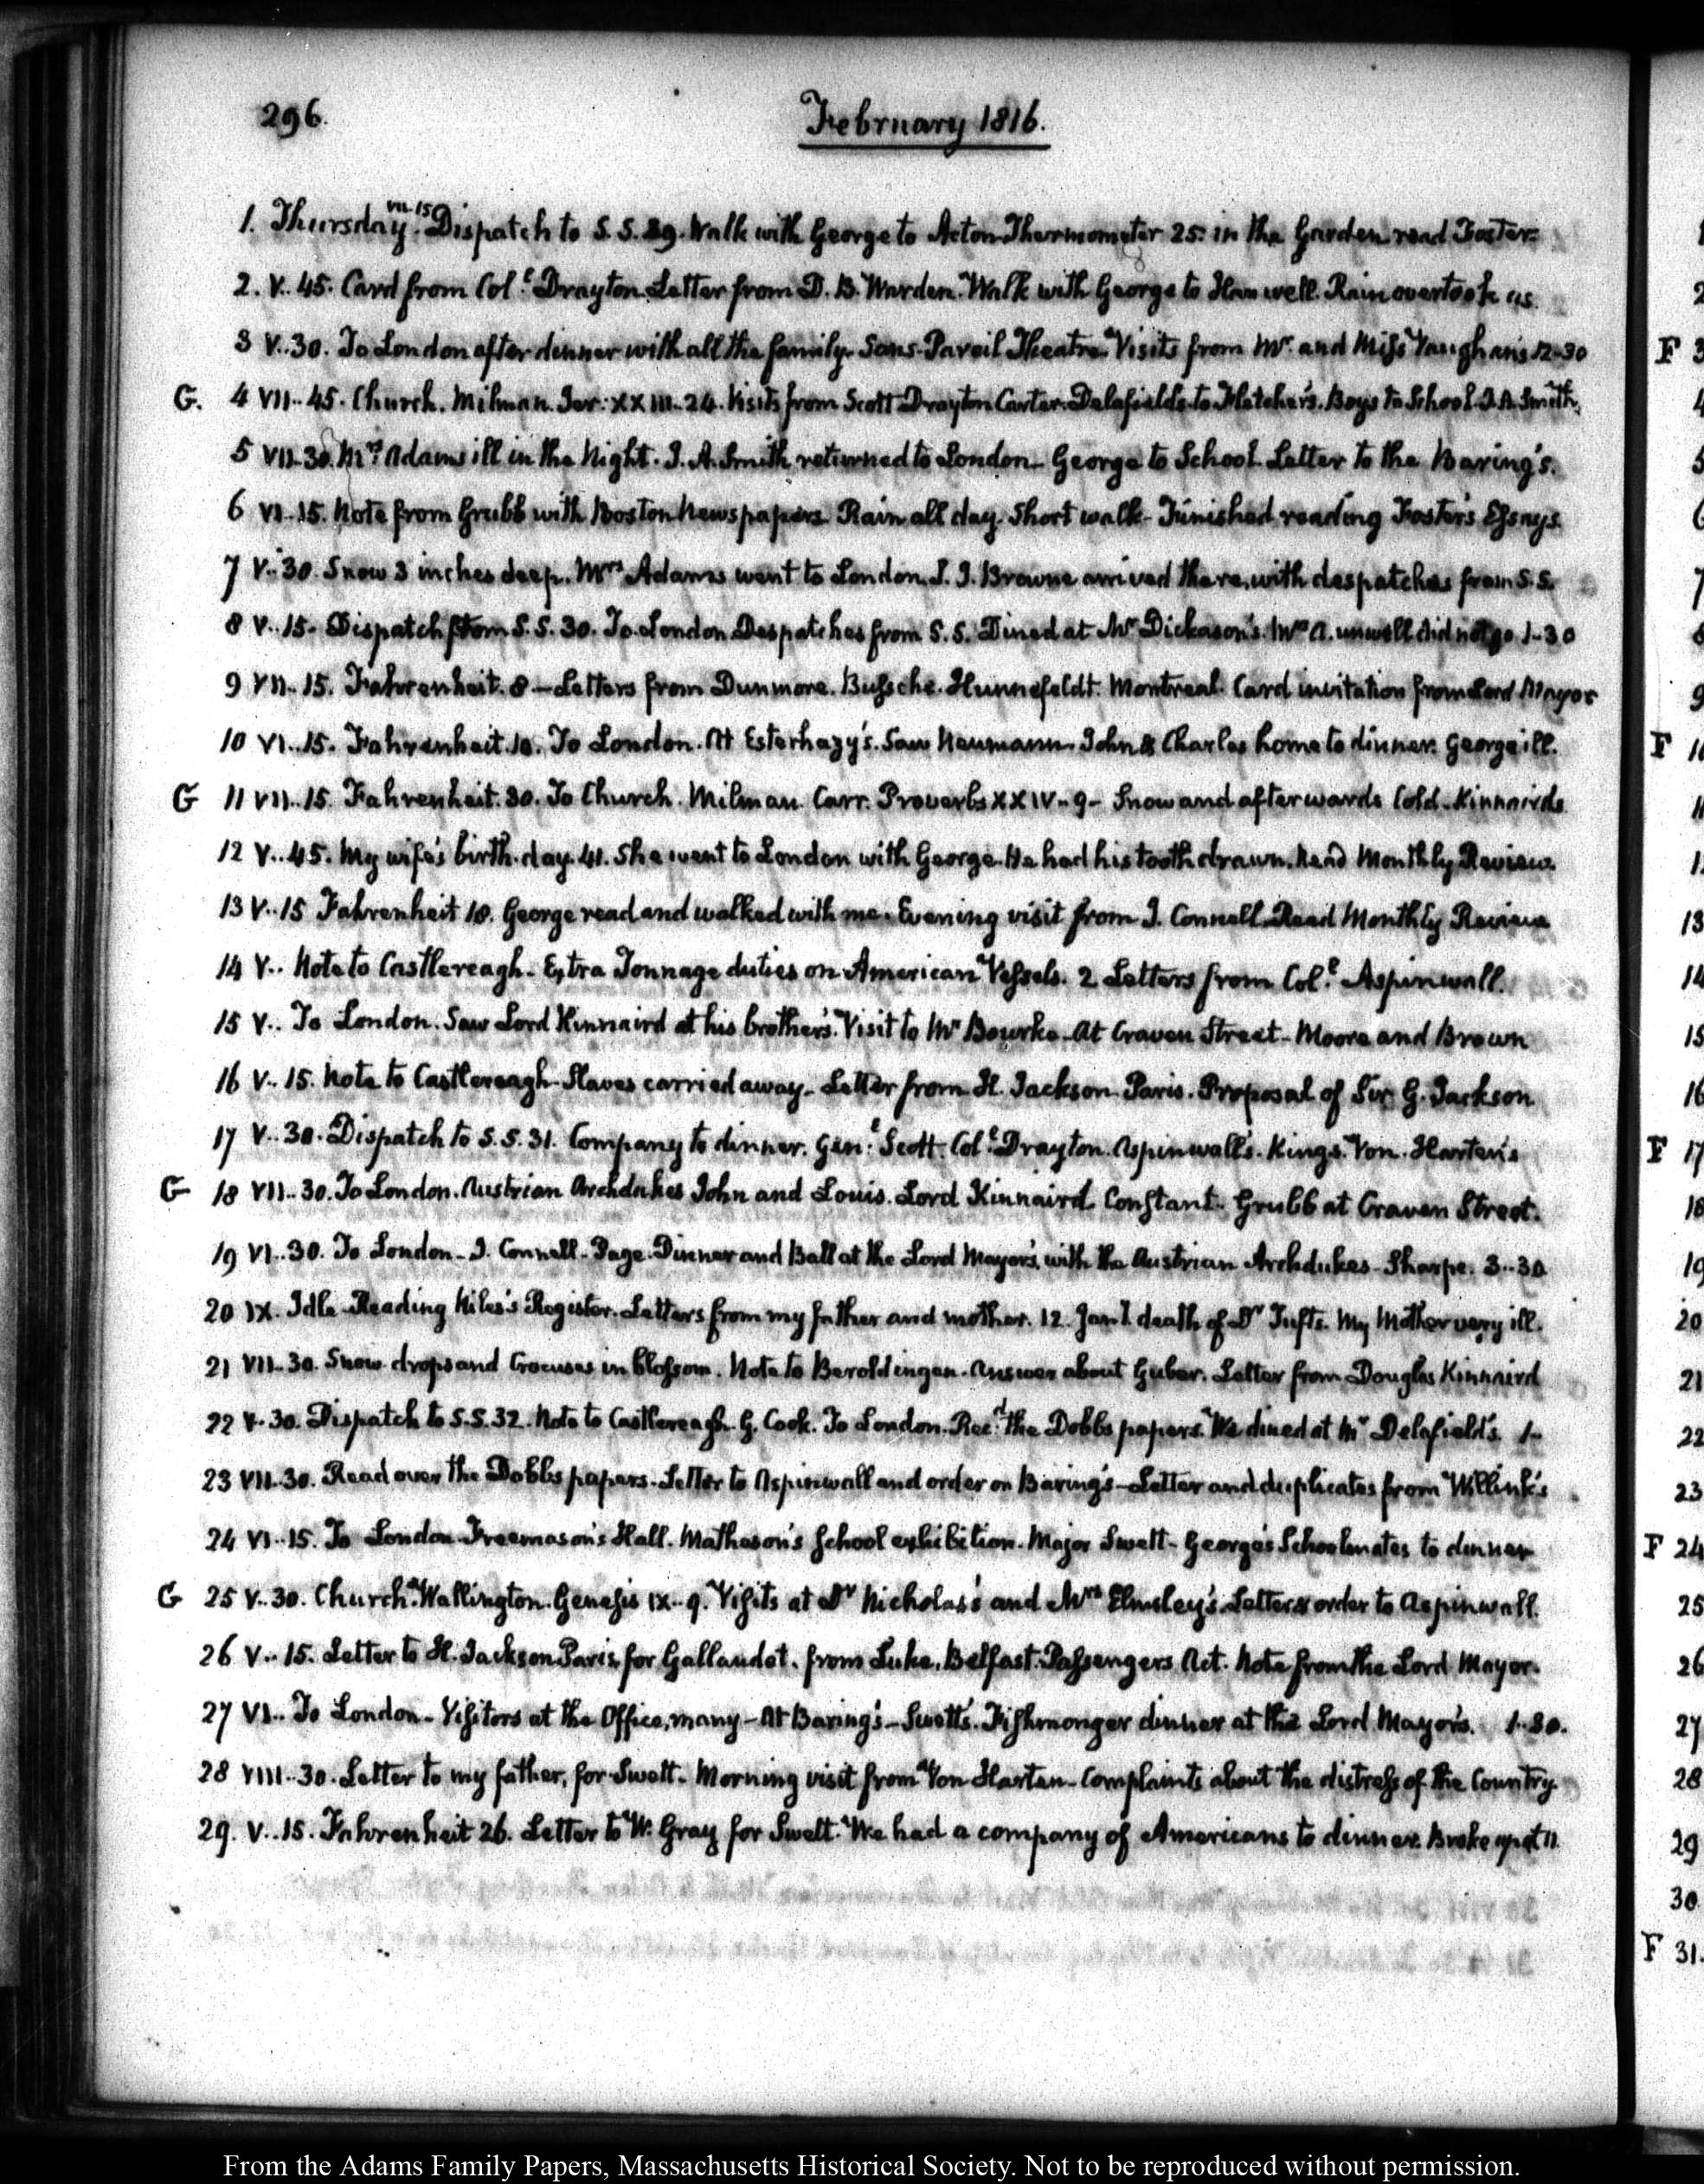 296.
February 1816.
1. Thursday. VII.15 Dispatch to S.S. 29. Walk with George to Acton. Thermometer 25. in the Garden. read Foster.
2. V..45. Card from Col.l Drayton. Letter from D. B. Warden. Walk with George to Hanwell. Rain overtook us.
3 V..30. To London after dinner with all the family. Sans-Pareil Theatre. Visits from Mr. and Miss Vaughan's 12-30
G. 4 VII..45. Church. Milman. Jer: XXIII..24. Visits from Scott Drayton Carter. Delafields. to Fletcher's. Boys to School. J. A. Smith.
5 VII..30. Mrs Adams ill in the Night. J. A. Smith returned to London. George to School. Letter to the Baring's.
6 VI..15. Note from Grubb with Boston Newspapers. Rain all day. Short walk. Finished reading Foster's Essays.
7 V..30. Snow 3 inches deep. Mrs Adams went to London. J. J. Browne arrived there, with despatches from S.S.
8 V..15. Dispatch from S.S. 30. To London Despatches from S.S. Dined at Mr Dickason's. Mrs A. unwell did not go. 1-30
9 VII..15. Fahrenheit. 8 — Letters from Dunmore. Bussche. Hunnefeldt. Montreal. Card invitation from Lord Mayor
10 VI..15. Fahrenheit. 10. To London. At Esterhazy's. Saw Neumann. John & Charles home to dinner. George ill.
G 11 VII..15. Fahrenheit. 30. To Church. Milman. Carr. Proverbs XXIV..9- Snow and afterwards Cold. Kinnairds
12 V..45. My wife's birth-day. 41. She went to London with George. He had his tooth drawn. Read Monthly Review.
13 V..15 Fahrenheit 18. George read and walked with me. Evening visit from J. Connell. Read Monthly Review
14 V.. Note to Castlereagh. Extra Tonnage duties on American Vessels. 2 Letters from Col.l Aspinwall.
15 V.. To London. Saw Lord Kinnaird at his brother's. Visit to Mr Bourke. At Craven Street. Moore and Brown
16 V..15. Note to Castlereagh. Slaves carried away. Letter from H. Jackson Paris. Proposal of Sir G. Jackson
17 V..30. Dispatch to S.S. 31. Company to dinner. Gen.l Scott. Col.l Drayton. Aspinwall's. Kings. Von. Harten's
G 18 VII..30. To London. Austrian Archdukes John and Louis. Lord Kinnaird. Constant. Grubb at Craven Street.
19 VI..30. To London. J. Connell. Page. Dinner and Ball at the Lord Mayor's, with the Austrian Archdukes. Sharpe. 3..30
20 IX. Idle. Reading Niles's Register. Letters from my father and mother. 12. Jan.y death of Dr Tufts. My Mother very ill.
21 VII..30. Snow drops and Crocuses in blossom. Note to Beroldingen. Answer about Guber. Letter from Douglas Kinnaird
22 V..30. Dispatch to S.S. 32. Note to Castlereagh. G. Cook. To London. Rec.d the Dobbs papers. We dined at Mr Delafield's. 1-
23 VII..30. Read over the Dobbs papers. Letter to Aspinwall and order on Baring's — Letter and duplicates from Willink's
24 VI..15. To London. Freemason's Hall. Matheson's School exhibition. Major Swett. George's Schoolmates to dinner
G 25 V..30. Church. Wallington. Genesis IX..9. Visits at Dr Nicholas's and Mrs Elmsley's. Letter & order to Aspinwall.
26 V..15. Letter to H. Jackson Paris, for Gallaudet. from Luke, Belfast. Passengers Act. Note from the Lord Mayor.
27 VI.. To London. Visitors at the Office, many — At Baring's — Swett's. Fishmonger dinner at the Lord Mayor's. 1..30.
28 VIII..30. Letter to my father, for Swett. Morning visit from Von Harten. Complaints about the distress of the Country.
29. V..15. Fahrenheit 26. Letter to W. Gray for Swett. We had a company of Americans to dinner. Broke up at 11
F 3
F
F 17
18
19
20
21
22
23
F 24
25
26
27
28
29
30
F 31.
From the Adams Family Papers, Massachusetts Historical Society. Not to be reproduced without permission.